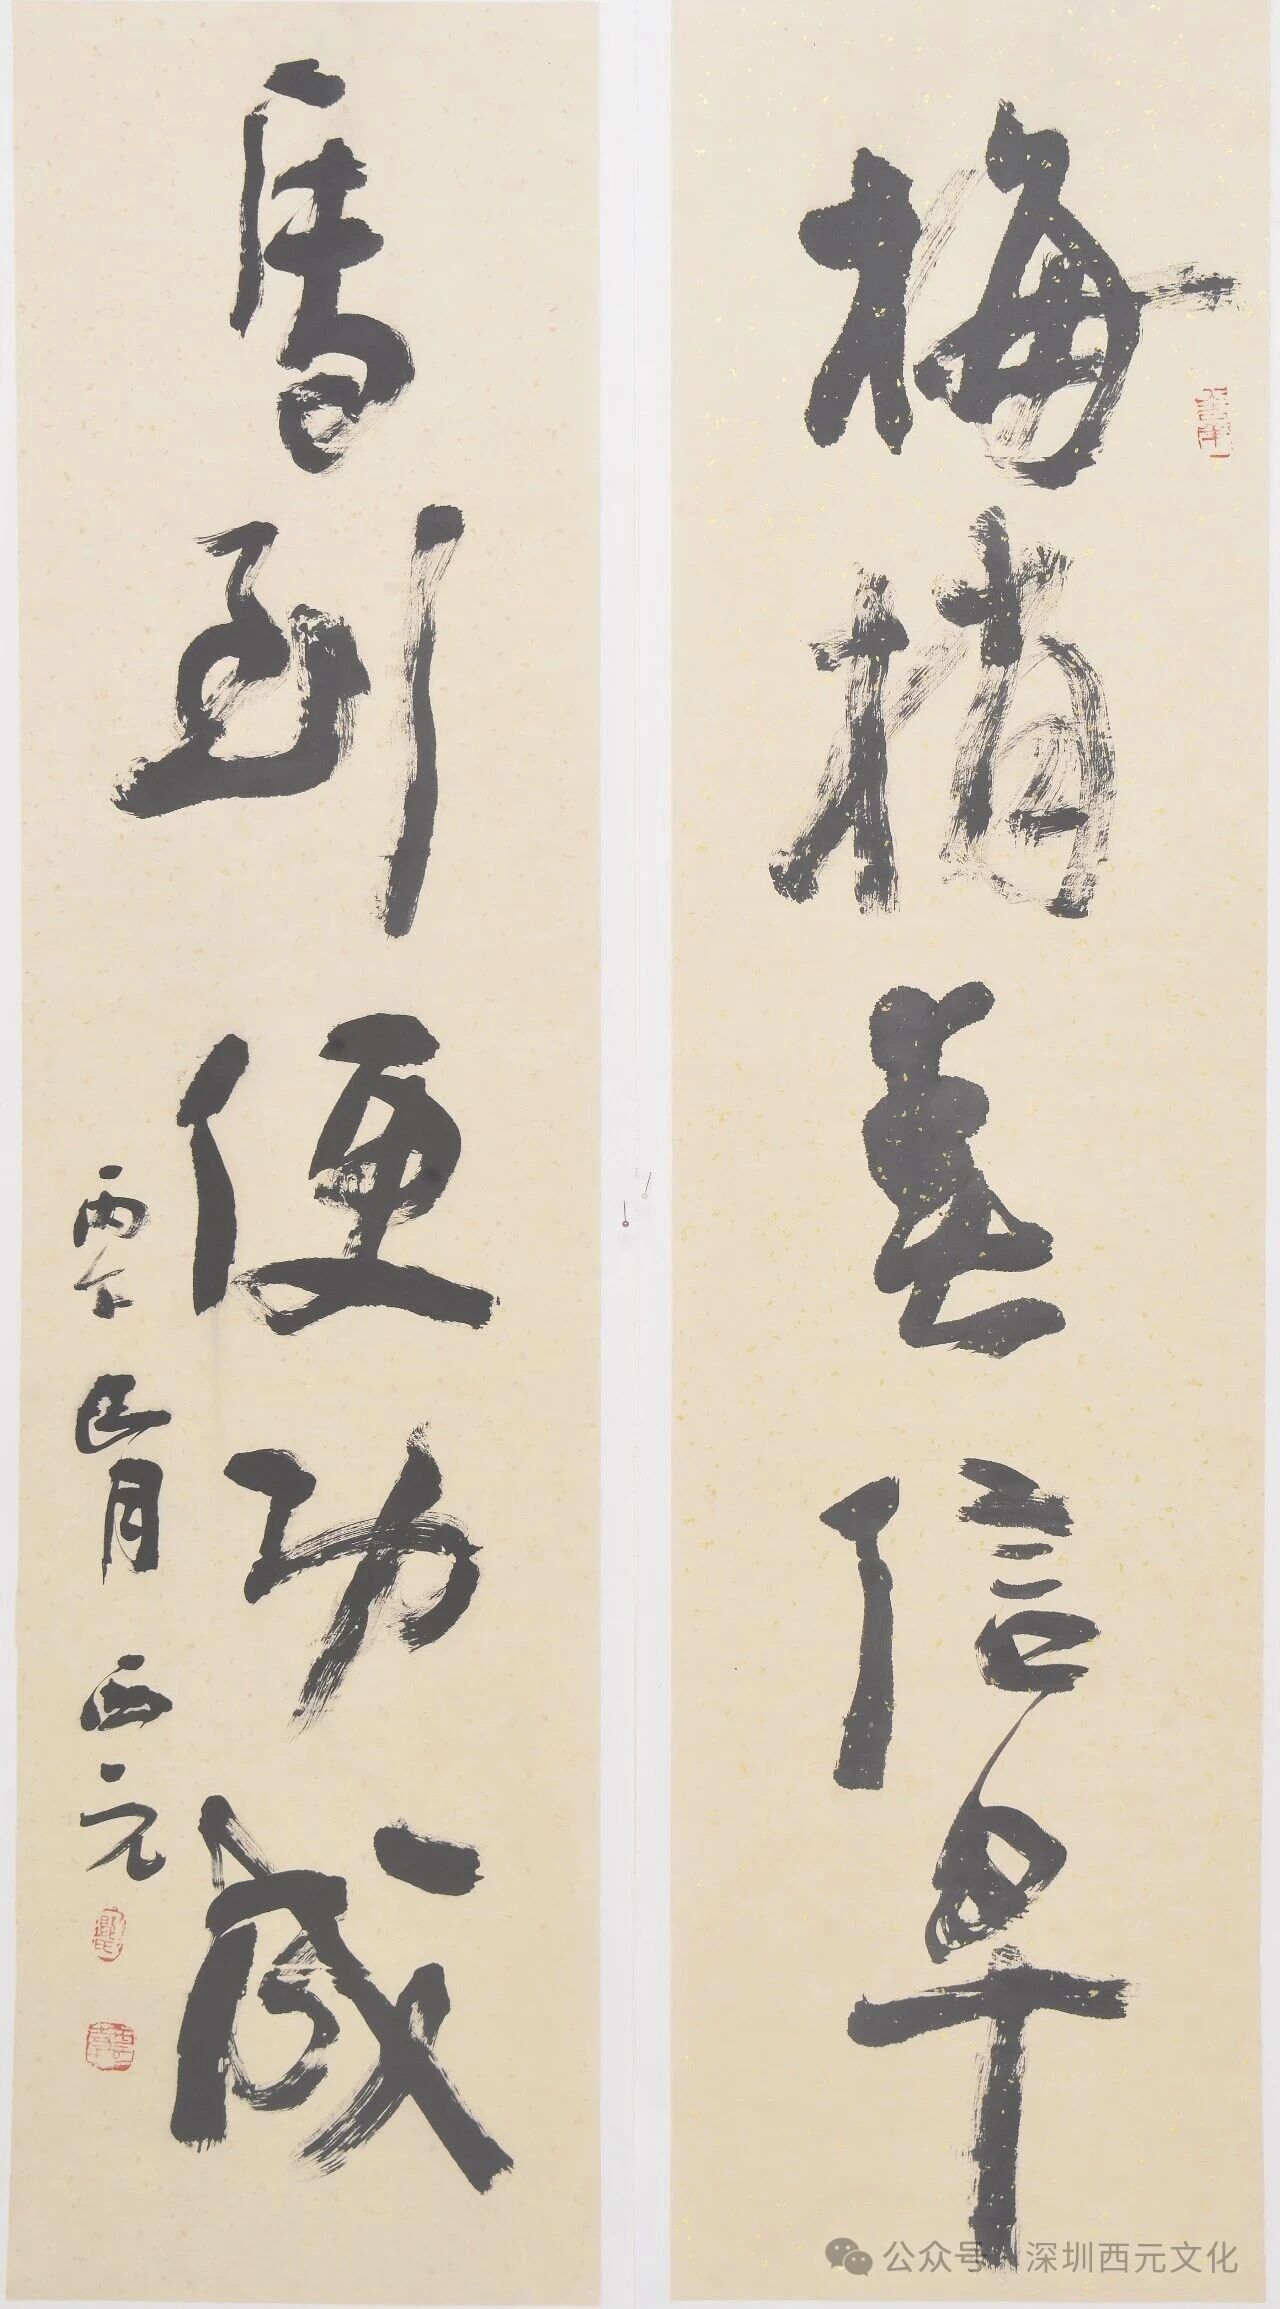 梅梢春信早
馬到便功成
丙午正月 西元
公众号·深圳西元文化